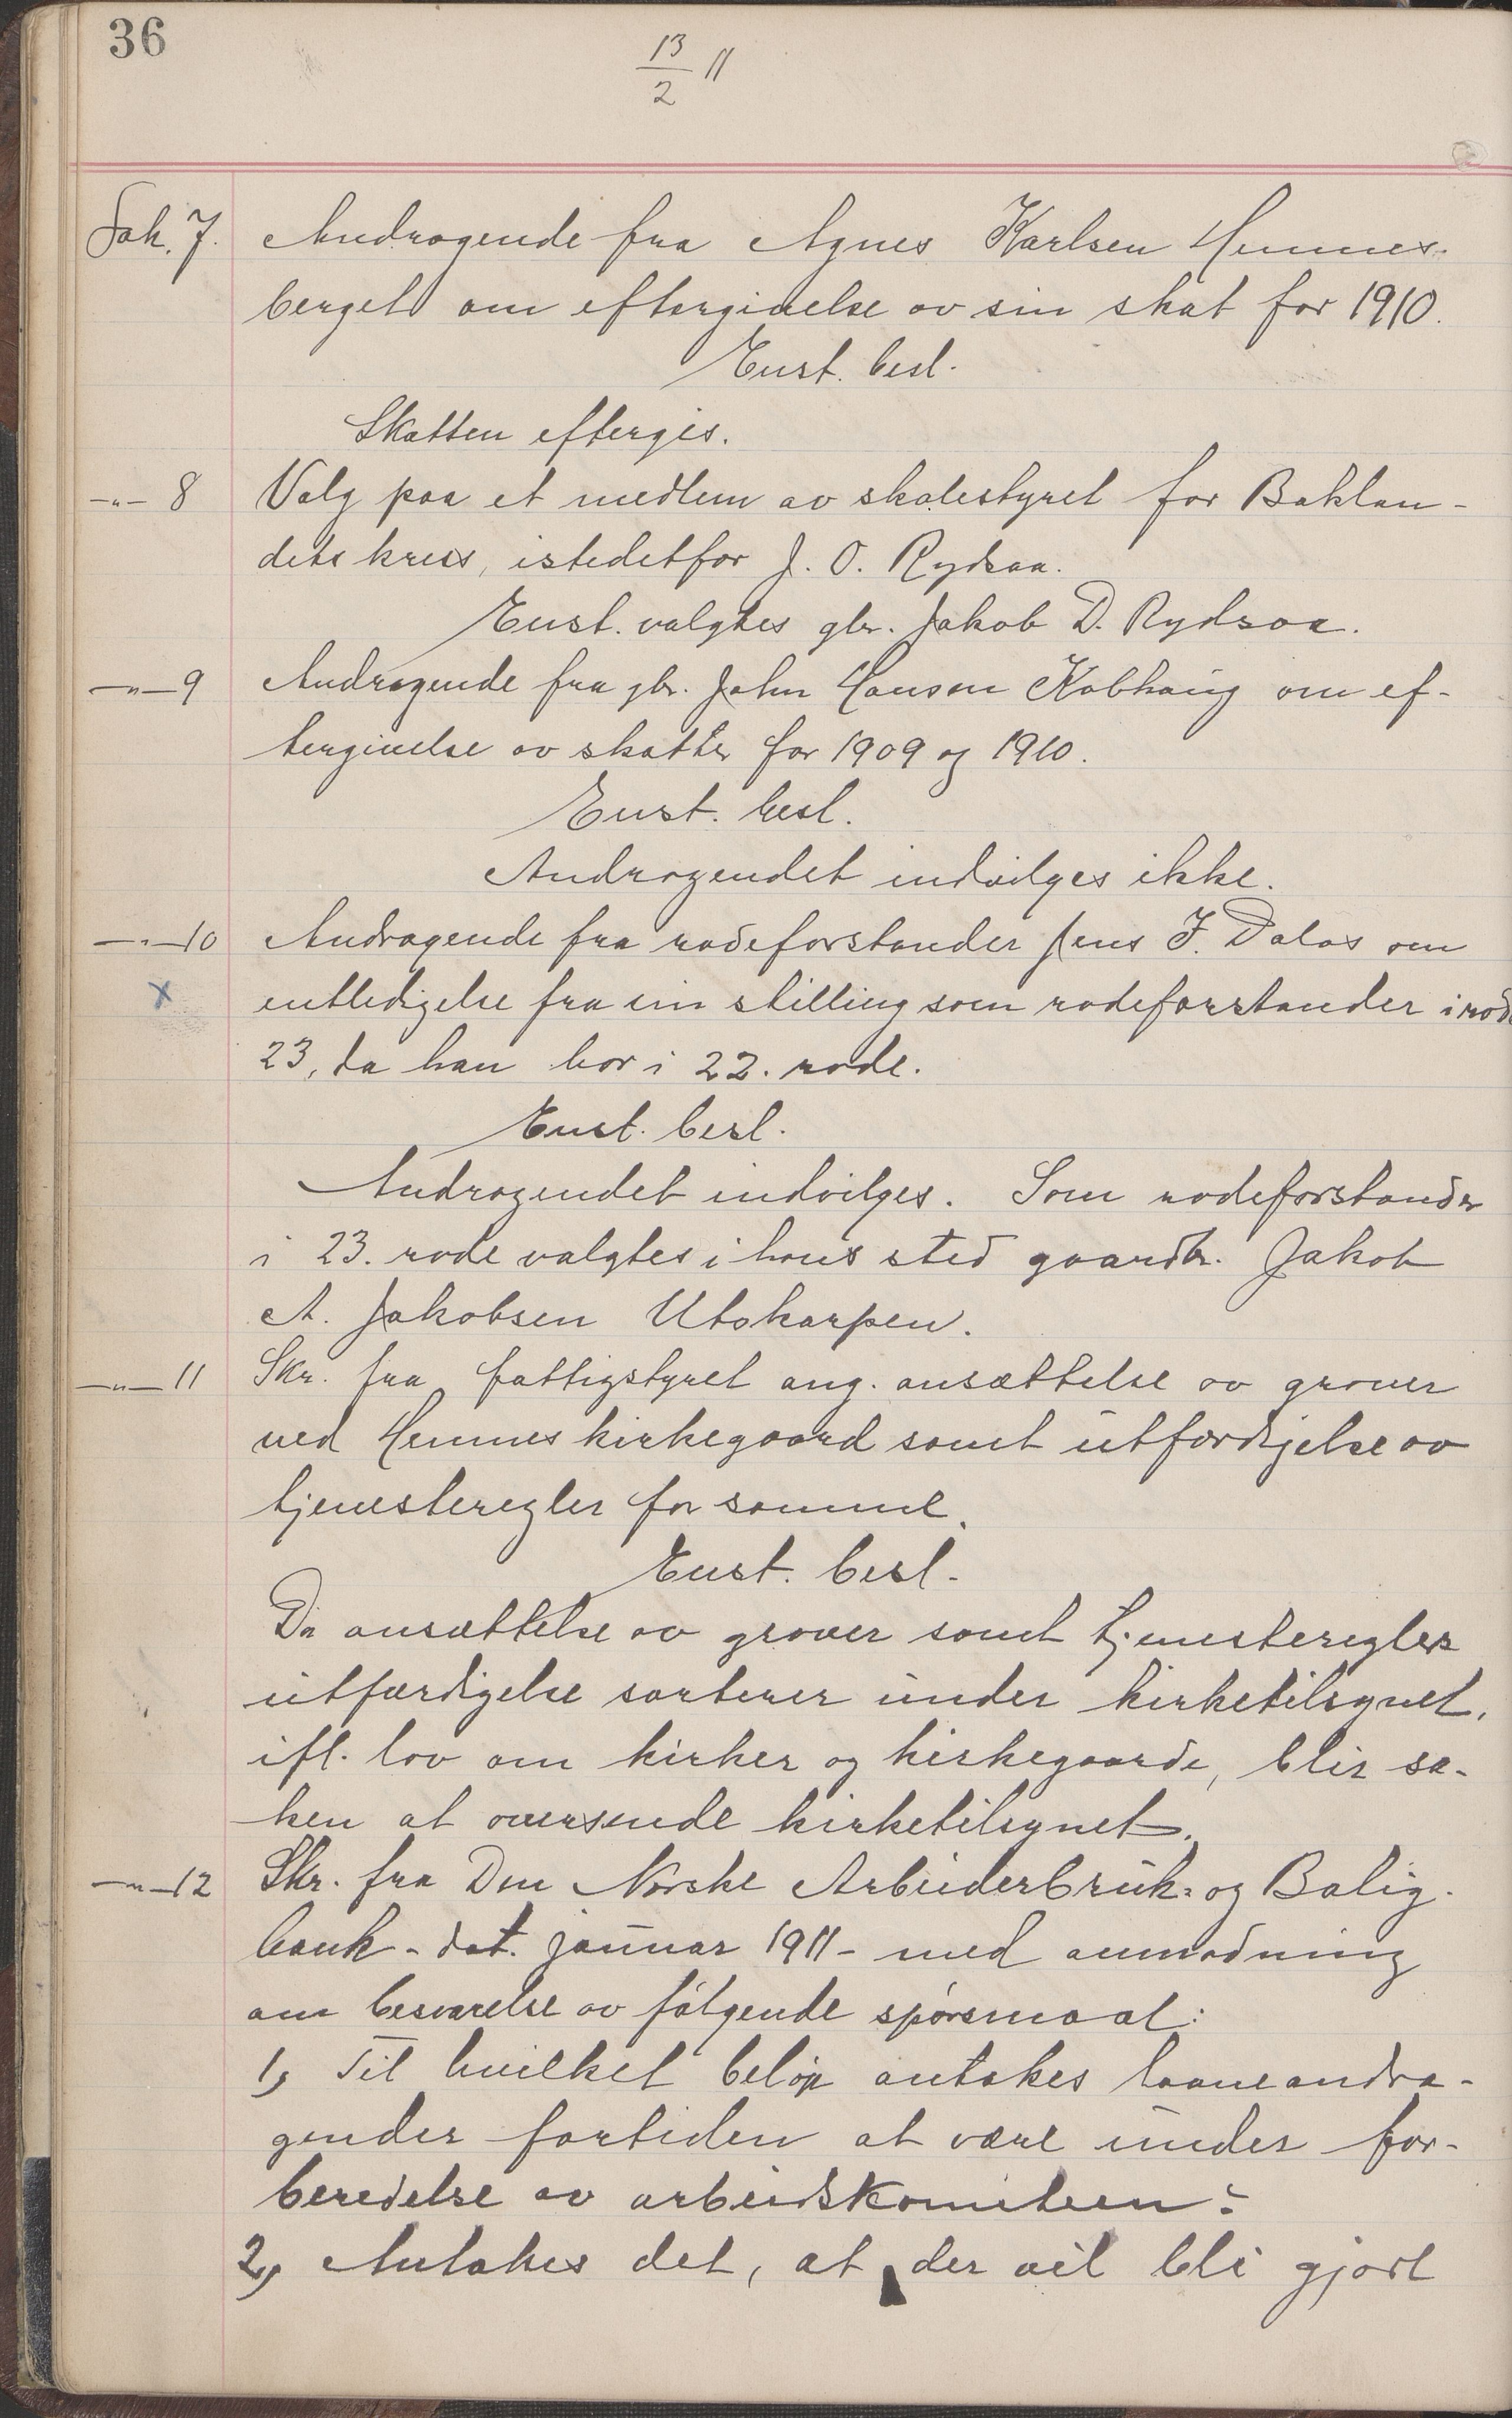 36
13/2 11
Sak. 7. Andragende fra Agnes Karlsen Hemnes-
berget om eftergivelse av sin skat for 1910.
Enst. besl.
Skatten eftergis.
—„— 8 Valg paa et medlem av skolestyret for Baklan-
dets kreds, istedetfor J. O. Rydsaa.
Enst. valgtes gbr. Jakob D. Rydsaa.
—„— 9 Andragende fra gbr. John Hansen Kobhaug om ef-
tergivelse av skatter for 1909 og 1910.
Enst. besl.
Andragendet indvilges ikke.
—„— 10 Andragende fra rodeforstander Jens J. Dalos om
x entledigelse fra sin stilling som rodeforstander i rode
23, da han bor i 22. rode.
Enst. besl.
Andragendet indvilges. Som rodeforstander
i 23. rode valgtes i hans sted gaardbr. Jakob
A. Jakobsen Utskarpen.
—„— 11 Skr. fra fattigstyret ang. ansættelse av graver
ved Hemnes kirkegaard samt utfærdigelse av
tjenesteregler for samme.
Enst. besl.
Da ansættelse av graver samt tjenestereglers
utfærdigelse sorterer under kirketilsynet,
ifl. lov om kirker og kirkegaarde, blir sa-
ken at oversende kirketilsynet.
—„— 12 Skr. fra Den Norske Arbeiderbruk- og Bolig-
bank - dat. januar 1911 - med anmodning
om besvarelse av følgende spørsmaal:
1, Til hvilket beløp antakes laaneandra-
gender fortiden at være under for-
beredelse av arbeidskomiteen?
2, Antakes det, at der vil bli gjort